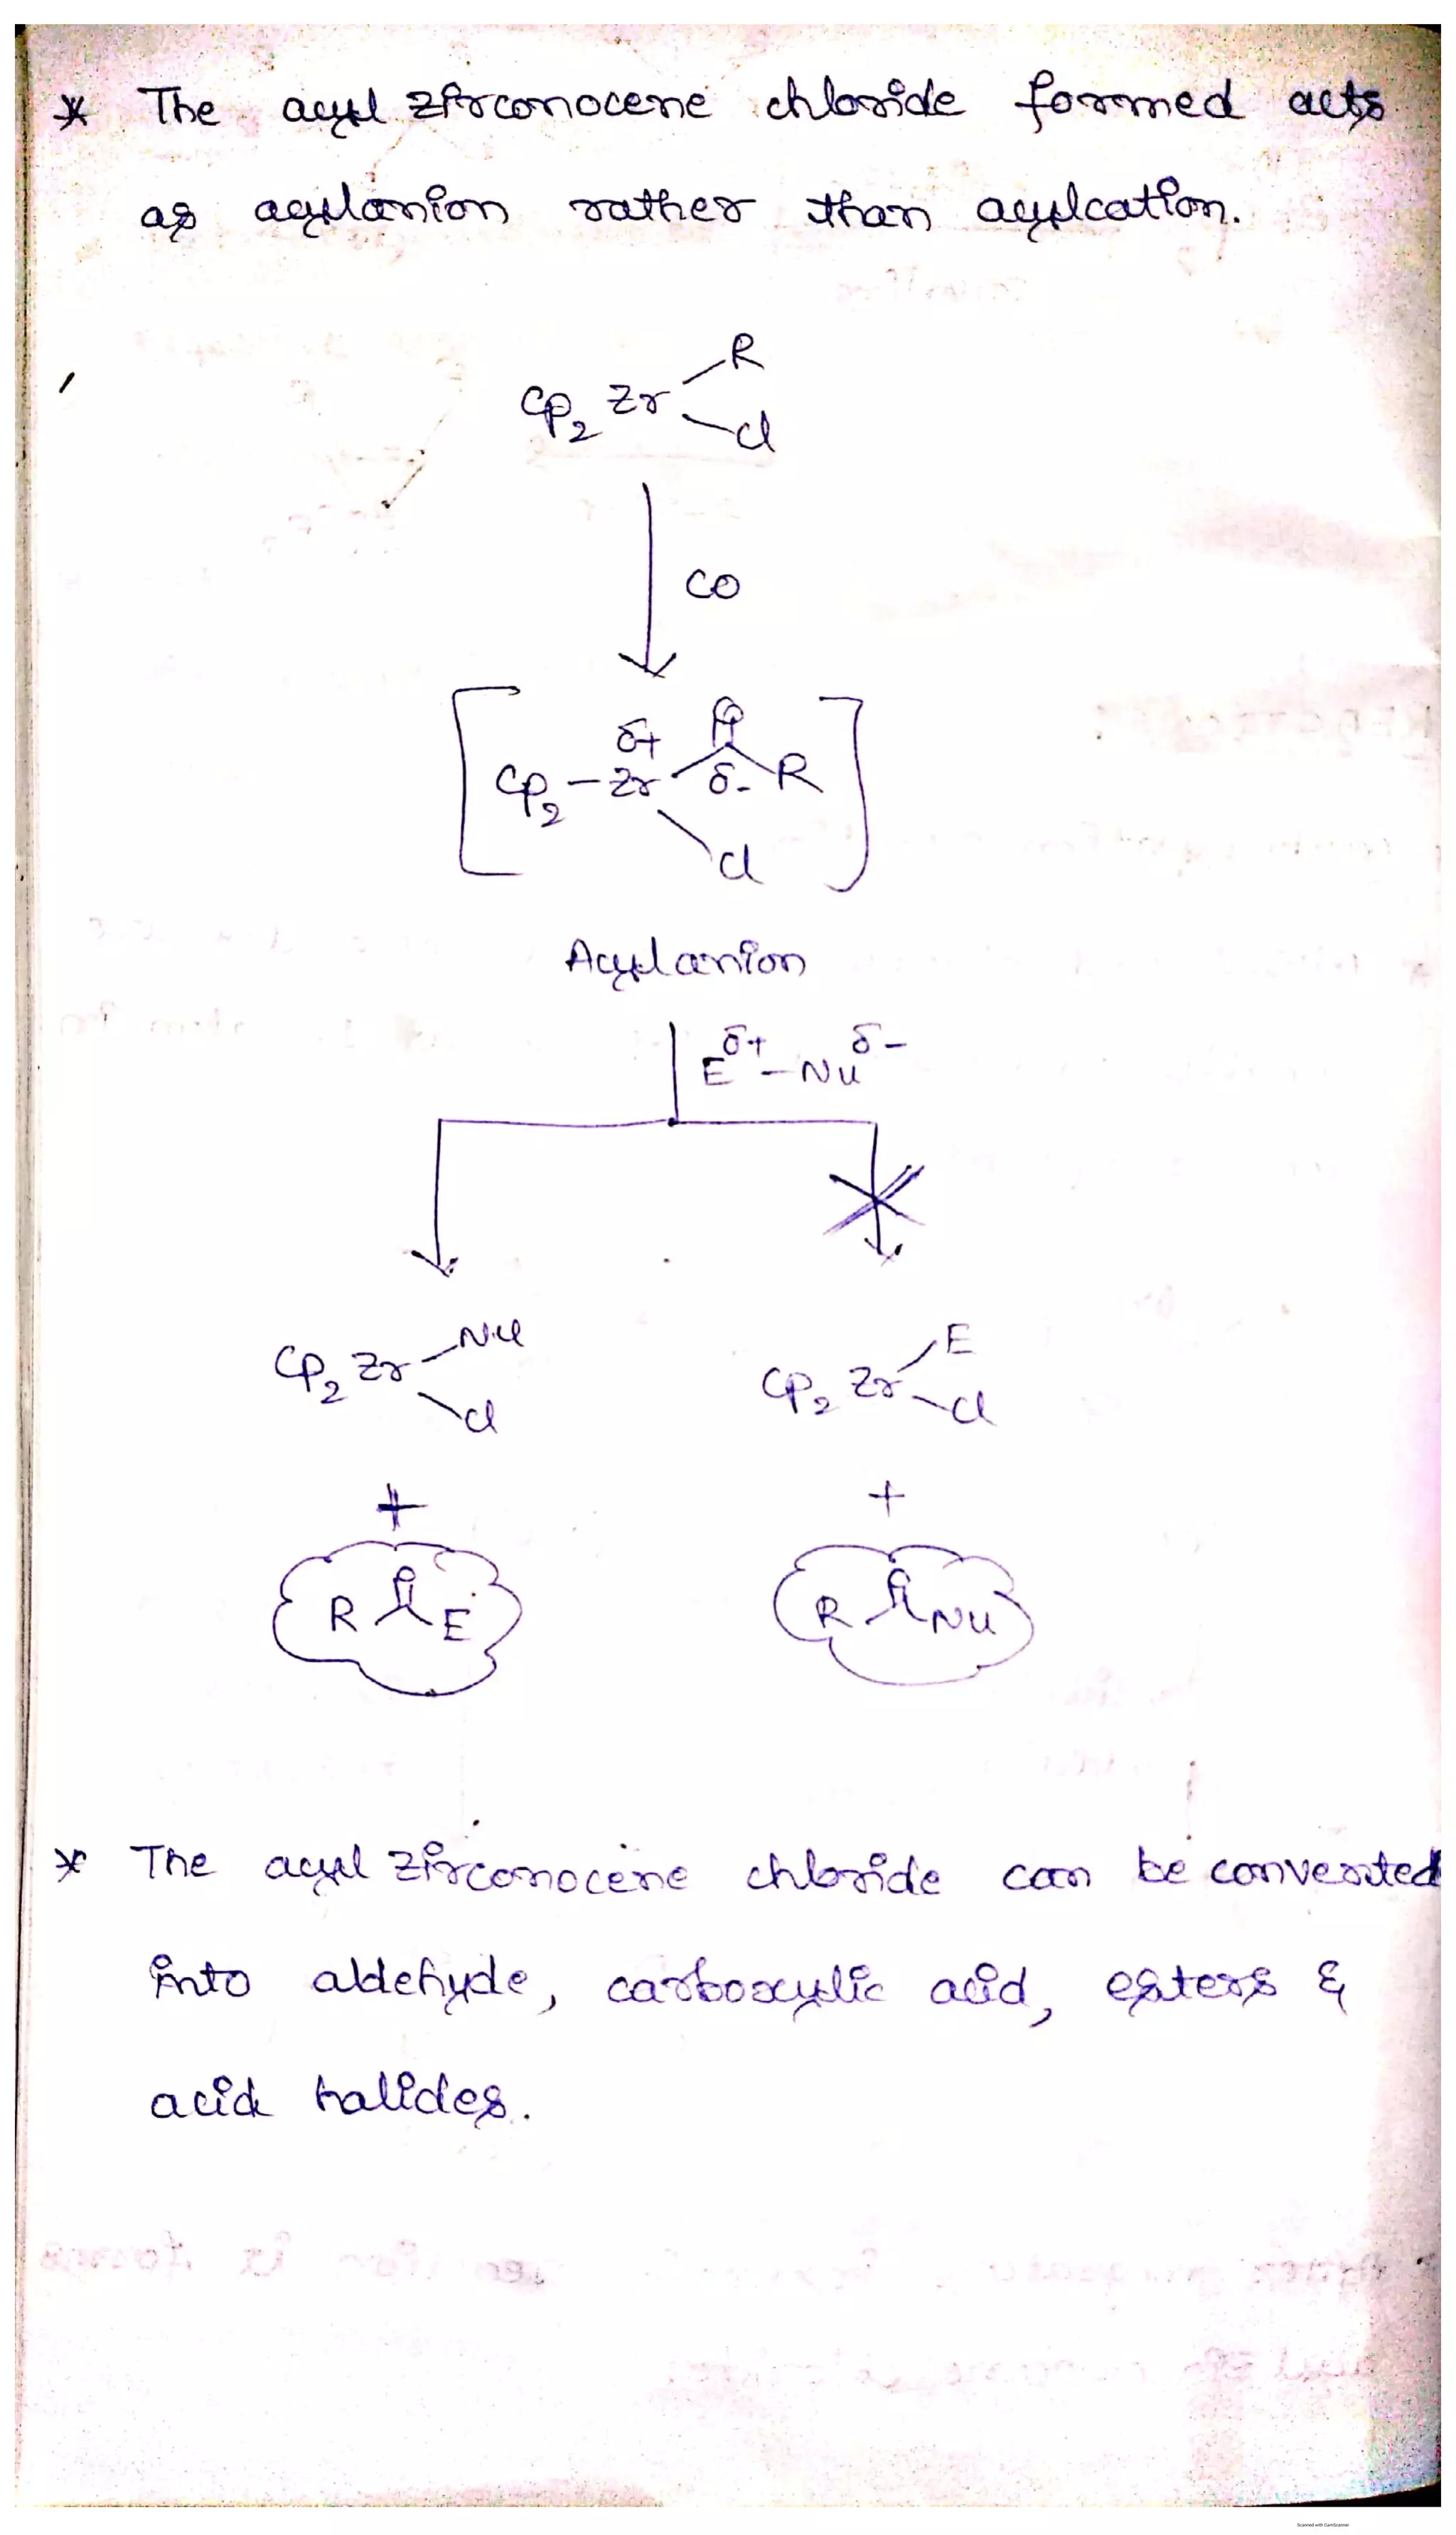 * The acyl zirconocene chloride formed acts
as acylanion rather than acylcation.
R
Cp₂ Zr
Cl
CO
O
δ+
Cp₂ – Zr δ- R
Cl
Acylanion
E^δ+ – Nu^δ-
Nu E
Cp₂ Zr Cp₂ Zr
Cl Cl
+ +
O O
R E R Nu
* The acyl zirconocene chloride can be converted
into aldehyde, carboxylic acid, esters &
acid halides.
Scanned with CamScanner